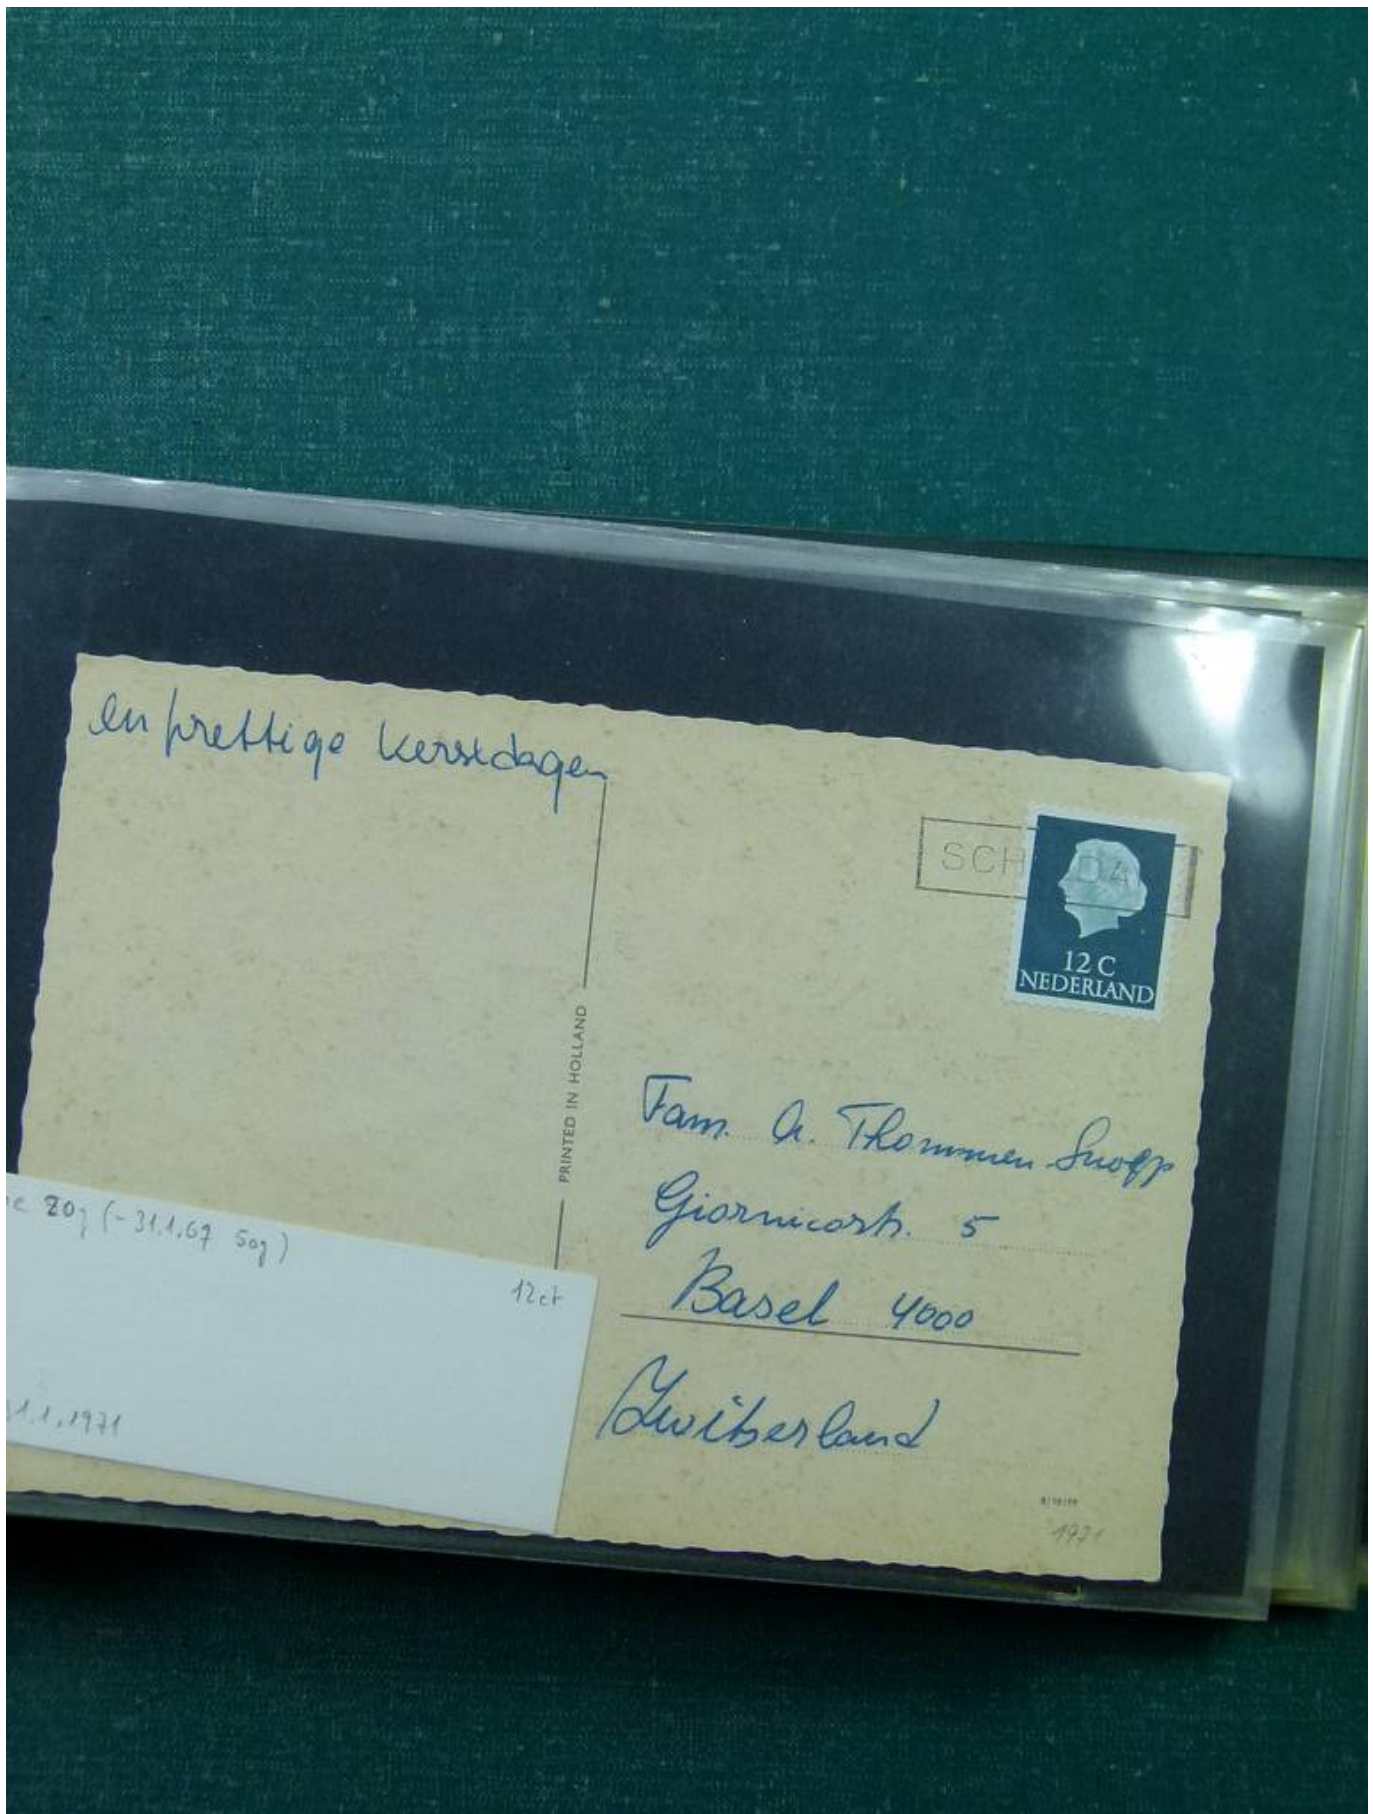 en prettige kerstdagen
SCH DA
12 C
NEDERLAND
PRINTED IN HOLLAND
Fam. A. Thommen-Snoep
Giornicostr. 5
Basel 4000
Zwitserland
20g (-31.1.67 50g)
12ct
1.1.1971
1971